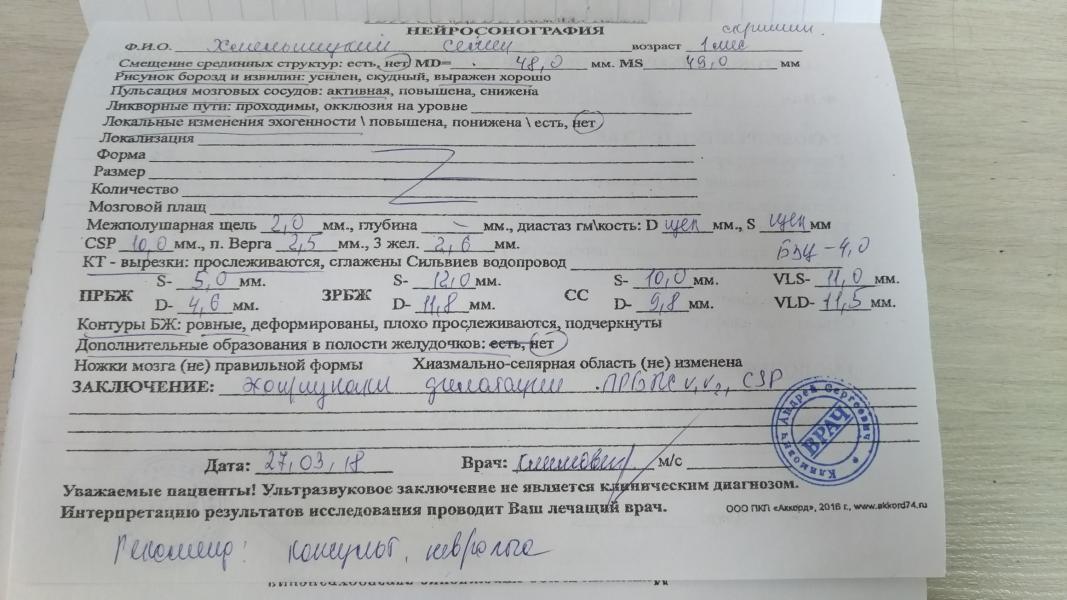 НЕЙРОСОНОГРАФИЯ
скрининг
Ф.И.О. Хмельницкий Семён возраст 1 мес
Смещение срединных структур: есть, нет MD= 48,0 мм. MS 49,0 мм
Рисунок борозд и извилин: усилен, скудный, выражен хорошо
Пульсация мозговых сосудов: активная, повышена, снижена
Ликворные пути: проходимы, окклюзия на уровне
Локальные изменения эхогенности \ повышена, понижена \ есть, нет
Локализация
Форма
Размер
Количество
Мозговой плащ
Межполушарная щель 2,0 мм., глубина – мм., диастаз гм\кость: D щел мм., S щел мм
CSP 10,0 мм., п. Верга 2,5 мм., 3 жел. 2,6 мм. БЗЦ – 4,0
КТ - вырезки: прослеживаются, сглажены Сильвиев водопровод
ПРБЖ S- 5,0 мм. ЗРБЖ S- 12,0 мм. СС S- 10,0 мм. VLS- 11,0 мм.
D- 4,6 мм. D- 11,8 мм. D- 9,8 мм. VLD- 11,5 мм.
Контуры БЖ: ровные, деформированы, плохо прослеживаются, подчеркнуты
Дополнительные образования в полости желудочков: есть, нет
Ножки мозга (не) правильной формы Хиазмально-селярная область (не) изменена
ЗАКЛЮЧЕНИЕ: Эхопризнаки дилатации CSP
Климович Андрей Сергеевич
ВРАЧ
Дата: 27,03,18 Врач: Климович м/с
Уважаемые пациенты! Ультразвуковое заключение не является клиническим диагнозом.
Интерпретацию результатов исследования проводит Ваш лечащий врач.
ООО ПКП «Аккорд», 2016 г., www.akkord74.ru
Рекоменд: консульт. невролога